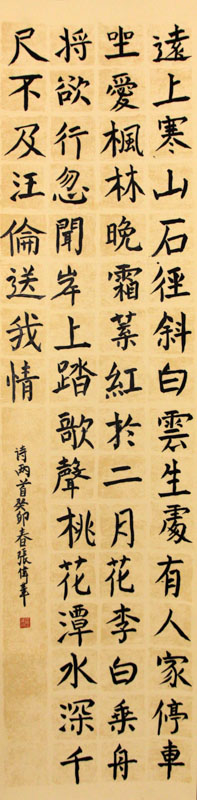 遠上寒山石徑斜白雲生處有人家停車
坐愛楓林晚霜葉紅於二月花李白乘舟
将欲行忽聞岸上踏歌聲桃花潭水深千
尺不及汪倫送我情
诗兩首癸卯春張偉